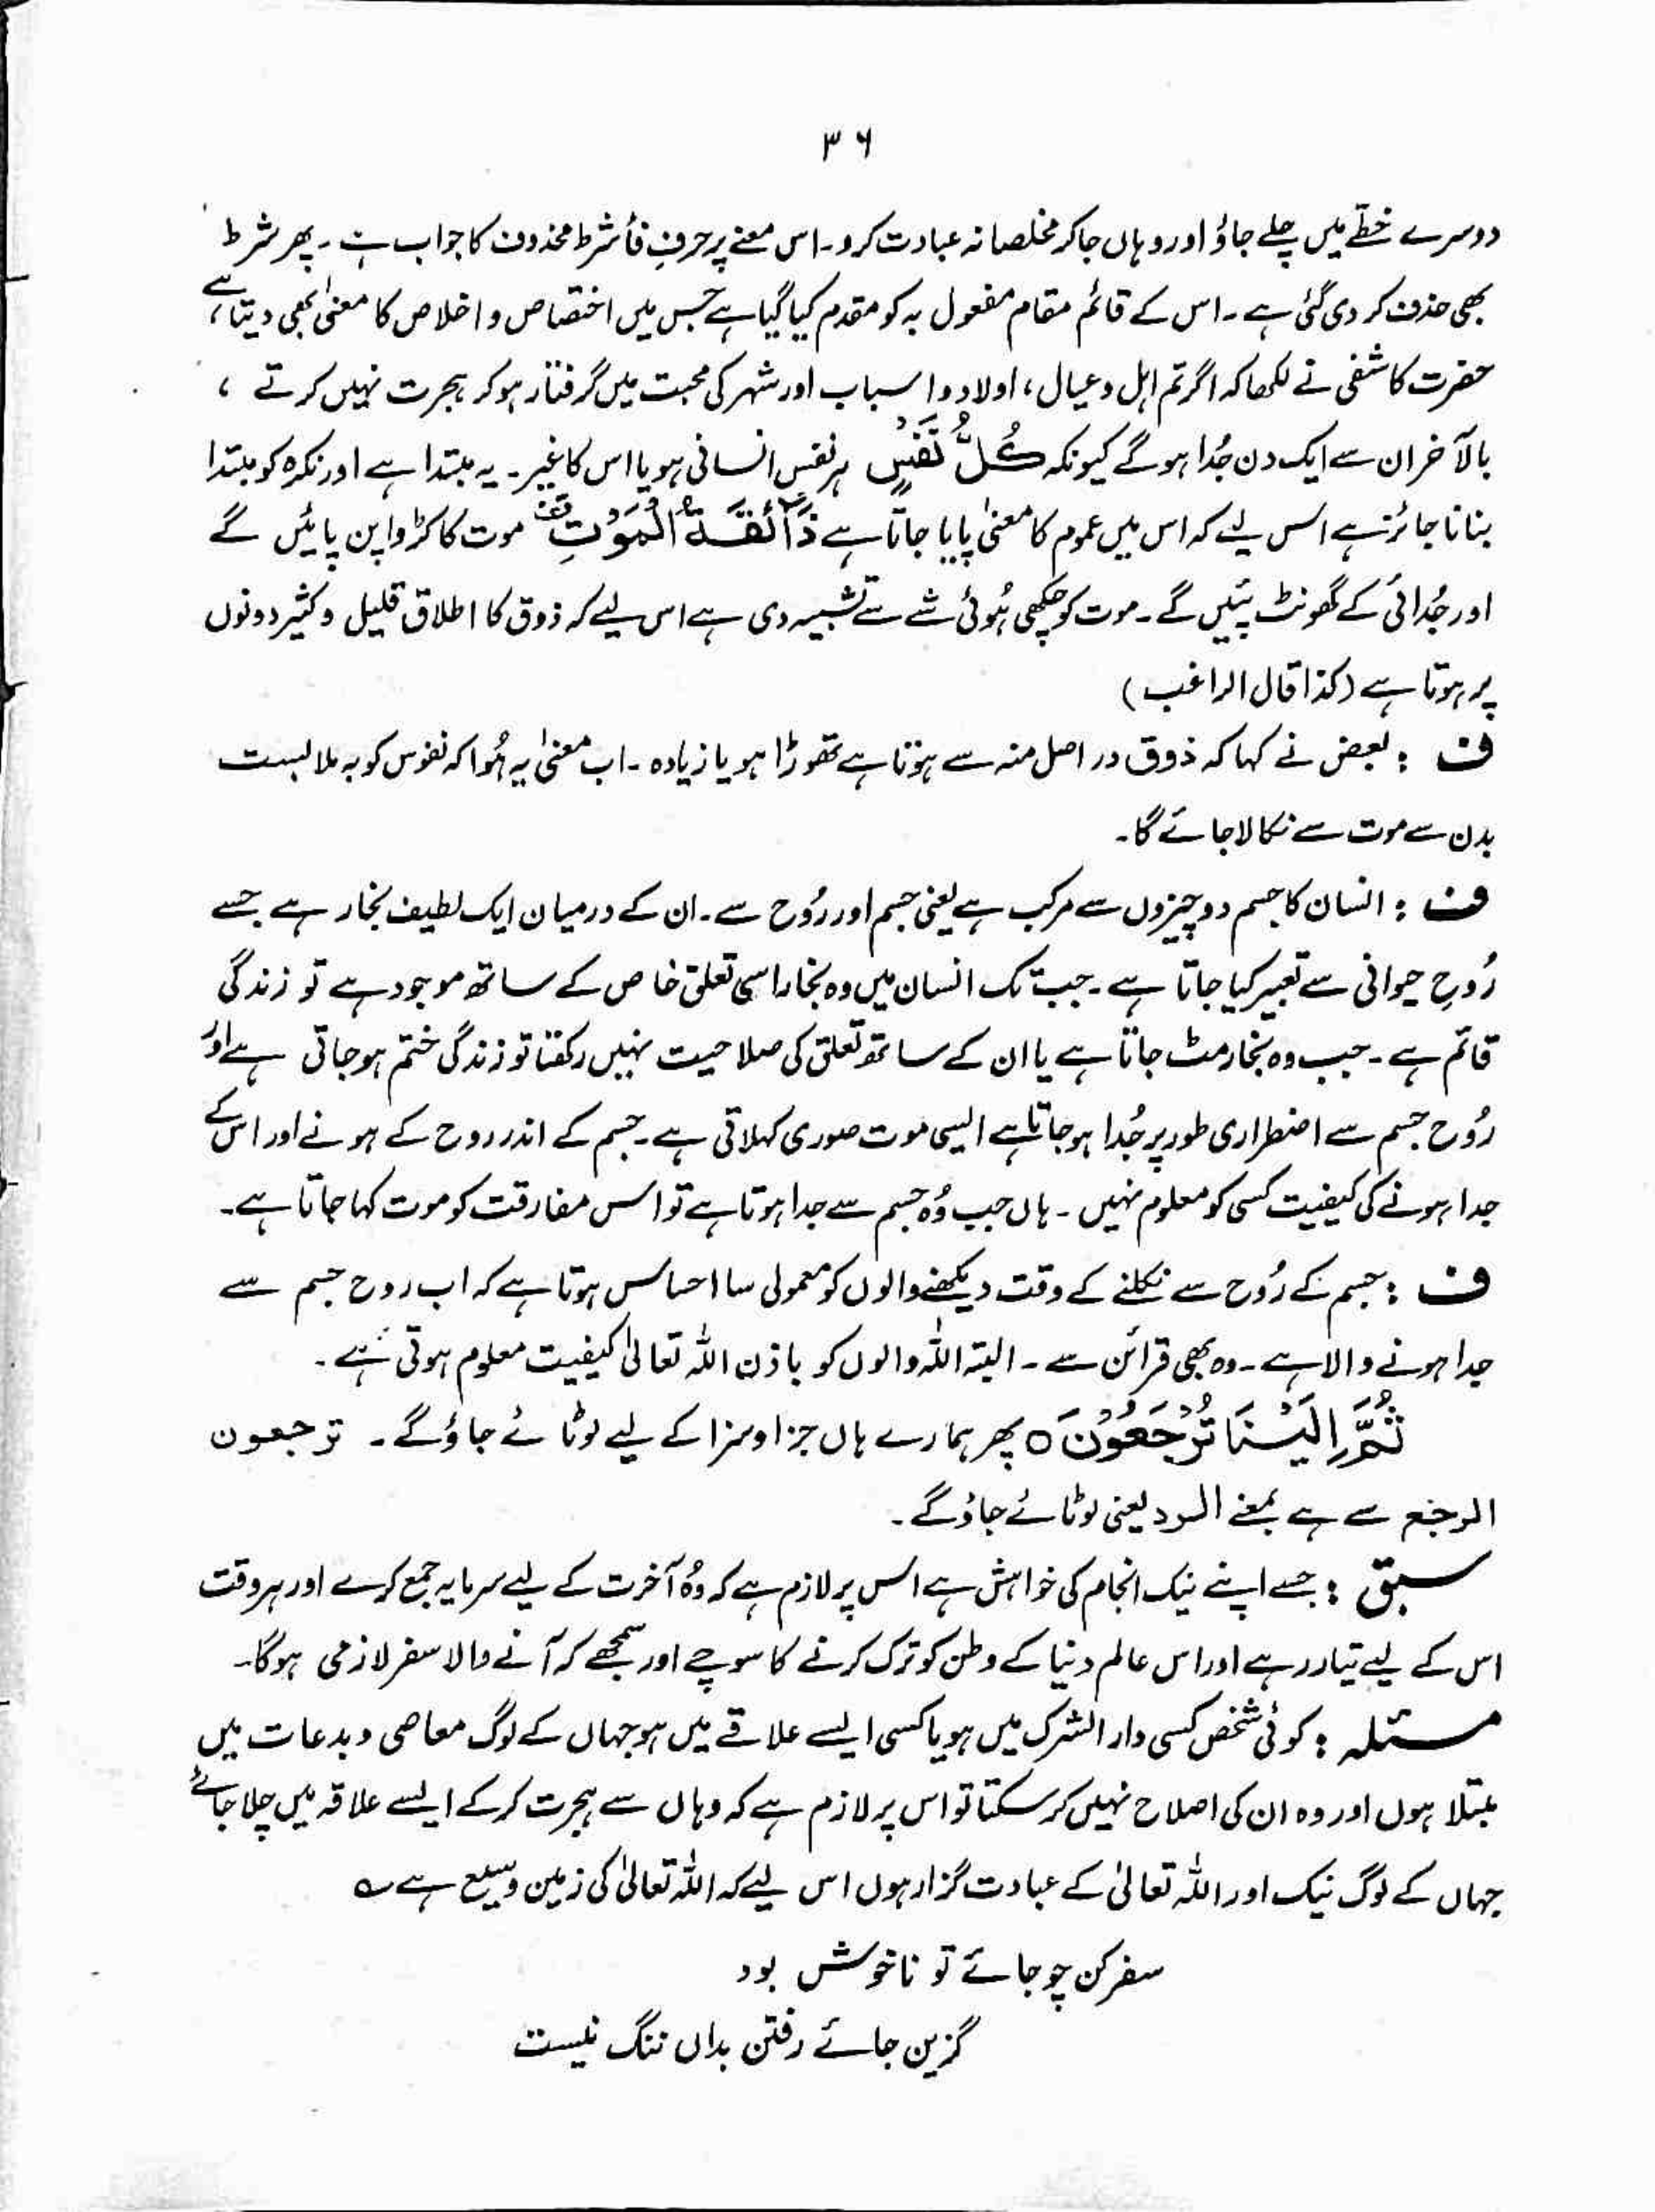 ۳۶
دوسرے خطّے میں چلے جاؤ اور وہاں جا کر مخلصانہ عبادت کرو۔ اس معنے پر حرفِ فأ شرط محذوف کا جواب ہے۔ پھر شرط
بھی حذف کر دی گئی ہے۔ اس کے قائم مقام مفعول بہ کو مقدم کیا گیا ہے جس میں اختصاص و اخلاص کا معنیٰ بھی دیتا ہے،
حضرت کاشفی نے لکھا کہ اگر تم اہل و عیال، اولاد و اسباب اور شہر کی محبت میں گرفتار ہو کر ہجرت نہیں کرتے،
بالآخر ان سے ایک دن جُدا ہو گے کیونکہ كُلُّ نَفْسٍ ہر نفس انسانی ہو یا اس کا غیر۔ یہ مبتدا ہے اور نکرہ کو مبتدا
بنانا جائز ہے اس لیے کہ اس میں عموم کا معنیٰ پایا جاتا ہے ذَآئِقَةُ الْمَوْتِ قف موت کا کڑوا پن پائیں گے
اور جُدائی کے گھونٹ پئیں گے۔ موت کو چکھی ہُوئی شے سے تشبیہ دی ہے اس لیے کہ ذوق کا اطلاق قلیل و کثیر دونوں
پر ہوتا ہے (کذا قال الراغب)
ف : بعض نے کہا کہ ذوق در اصل منہ سے ہوتا ہے تھوڑا ہو یا زیادہ۔ اب معنیٰ یہ ہُوا کہ نفوس کو بہ ملابست
بدن سے موت سے نکالا جائے گا۔
ف : انسان کا جسم دو چیزوں سے مرکب ہے یعنی جسم اور رُوح سے۔ ان کے درمیان ایک لطیف بخار ہے جسے
رُوحِ حیوانی سے تعبیر کیا جاتا ہے۔ جب تک انسان میں وہ بخار اسی تعلق خاص کے ساتھ موجود ہے تو زندگی
قائم ہے۔ جب وہ بخار مٹ جاتا ہے یا ان کے ساتھ تعلق کی صلاحیت نہیں رکھتا تو زندگی ختم ہو جاتی ہے اور
رُوح جسم سے اضطراری طور پر جُدا ہو جاتا ہے ایسی موت صوری کہلاتی ہے۔ جسم کے اندر روح کے ہونے اور اس کے
جدا ہونے کی کیفیت کسی کو معلوم نہیں۔ ہاں جب وُہ جسم سے جدا ہوتا ہے تو اس مفارقت کو موت کہا جاتا ہے۔
ف : جسم کے رُوح سے نکلنے کے وقت دیکھنے والوں کو معمولی سا احساس ہوتا ہے کہ اب روح جسم سے
جدا ہونے والا ہے۔ وہ بھی قرائن سے۔ البتہ اللہ والوں کو باذن اللہ تعالیٰ کیفیت معلوم ہوتی ہے۔
ثُمَّ اِلَيْنَا تُرْجَعُوْنَ ○ پھر ہمارے ہاں جزا و سزا کے لیے لوٹائے جاؤ گے۔ ترجعون
الرجع سے ہے بمعنے الرد یعنی لوٹائے جاؤ گے۔
سبق : جسے اپنے نیک انجام کی خواہش ہے اس پر لازم ہے کہ وُہ آخرت کے لیے سرمایہ جمع کرے اور ہر وقت
اس کے لیے تیار رہے اور اس عالم دنیا کے وطن کو ترک کرنے کا سوچے اور سمجھے کہ آنے والا سفر لازمی ہوگا۔
مسئلہ : کوئی شخص کسی دار الشرک میں ہو یا کسی ایسے علاقے میں ہو جہاں کے لوگ معاصی و بدعات میں
مبتلا ہوں اور وہ ان کی اصلاح نہیں کر سکتا تو اس پر لازم ہے کہ وہاں سے ہجرت کر کے ایسے علاقہ میں چلا جائے
جہاں کے لوگ نیک اور اللہ تعالیٰ کے عبادت گزار ہوں اس لیے کہ اللہ تعالیٰ کی زمین وسیع ہے ؎
سفر کن چو جائے تو ناخوش بود
گزین جائے رفتن بداں ننگ نیست